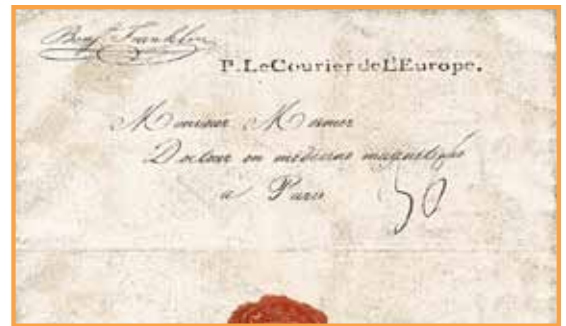 Benj. Franklin
P. LeCourier de L'Europe.
Monsieur Mesmer
Docteur en médecine magnétique
a Paris
50